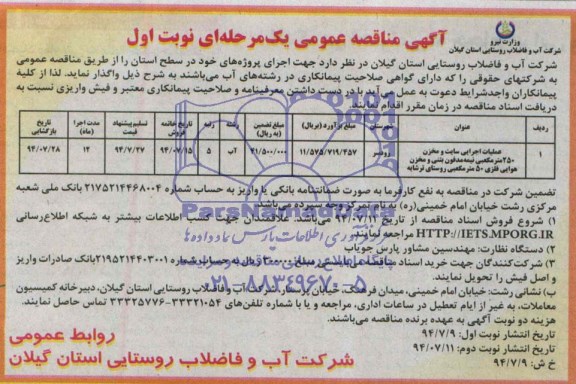 وزارت نیرو
شرکت آب و فاضلاب روستایی استان گیلان
آگهی مناقصه عمومی یک‌مرحله‌ای نوبت اول
شرکت آب و فاضلاب روستایی استان گیلان در نظر دارد جهت اجرای پروژه‌های خود در سطح استان را از طریق مناقصه عمومی
به شرکتهای حقوقی را که دارای گواهی صلاحیت پیمانکاری در رشته‌های آب می‌باشند به شرح ذیل واگذار نماید. لذا از کلیه
پیمانکاران واجدشرایط دعوت به عمل می‌آید با در دست داشتن معرفینامه و صلاحیت پیمانکاری معتبر و فیش واریزی نسبت به
دریافت اسناد مناقصه در زمان مقرر اقدام نمایند
ردیف عنوان شهرستان مبلغ برآورد (بریال) مبلغ تضمین (به ریال) رشته رتبه تاریخ خاتمه فروش تسلیم پیشنهاد قیمت مدت اجرا (ماه) تاریخ بازگشایی
۱ عملیات اجرایی سایت و مخزن ۲۵۰ مترمکعبی نیمه‌مدفون بتنی و مخزن هوایی فلزی ۵۰ مترمکعبی روستای ترشابه رودسر ۱۱/۵۷۵/۷۱۹/۴۵۷ ۴۱/۵۰۰/۰۰۰ آب ۵ ۹۴/۰۷/۱۵ ۹۴/۷/۲۷ ۱۴ ۹۴/۰۷/۲۸
تضمین شرکت در مناقصه به نفع کارفرما به صورت ضمانتنامه بانکی یا واریز به حساب شماره ۲۱۷۵۲۱۴۴۶۸۰۰۴ بانک ملی شعبه
مرکزی رشت خیابان امام خمینی(ره) به نام تمرکز وجه سپرده می‌باشد.
۱) شروع فروش اسناد مناقصه از تاریخ ۹۴/۰۷/۱۱ می‌باشد. علاقمندان جهت کسب اطلاعات بیشتر به شبکه اطلاع‌رسانی
HTTP://IETS.MPORG.IR مراجعه نمایند.
۲) دستگاه نظارت: مهندسین مشاور پارس جویاب
۳) شرکت‌کنندگان جهت خرید اسناد مناقصه می‌بایستی مبلغ ۳۰۰۰۰۰ ریال به حساب شماره ۲۱۹۵۲۱۴۴۰۳۰۰۱ بانک صادرات واریز
و اصل فیش را تحویل نمایند.
ب) نشانی: رشت، خیابان امام خمینی، میدان فرهنگ، خیابان پرستار، شرکت آب و فاضلاب روستایی استان گیلان، دبیرخانه کمیسیون
معاملات، به غیر از ایام تعطیل در ساعات اداری، مراجعه و یا با شماره تلفن‌های ۳۳۳۲۱۰۵۴-۳۳۳۲۵۷۷۶ تماس حاصل نمایند.
هزینه دو نوبت آگهی به عهده برنده مناقصه می‌باشند.
تاریخ انتشار نوبت اول: ۹۴/۷/۹
تاریخ انتشار نوبت دوم: ۹۴/۰۷/۱۱
خ ش: ۹۴/۷/۹
روابط عمومی
شرکت آب و فاضلاب روستایی استان گیلان
ParsNamadData
فن‌آوری اطلاعات پارس نماد داده‌ها
۰۲۱-۸۸۳۴۹۶۷۰-۵